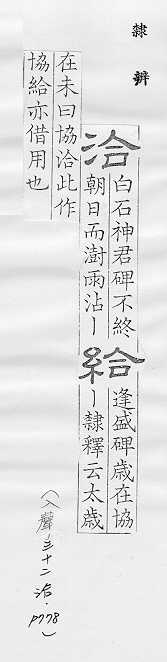 隸辨
洽
白石神君碑不終
朝日而澍雨沾丨
給
逢盛碑歲在協
丨隸釋云太歲
在未曰協洽此作
協給亦借用也
(入聲三十二洽．P778)